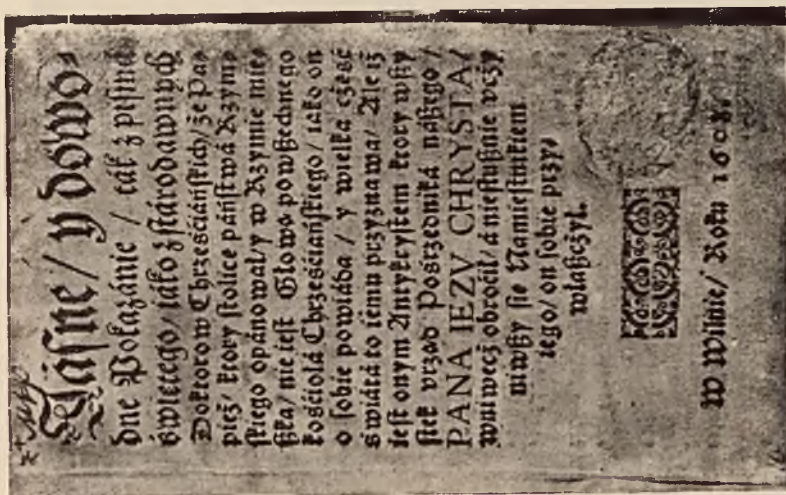 Jásne/ y dowo-
dne Pokazánie / ták z piśmá
świętego/ iáko z stárodawnych
Doktorow Chrześćiáńskich/ że Pa-
pież/ ktory stolice páństwá Rzyms
kiego opánował/ y w Rzymie mies
szka/ nie iest Głowa powszechnego
kośćiołá Chrześćiańskiego/ iáko on
o sobie powiáda / y wielka część
świátá to iemu przyznawa/ Ale iż
iest onym Antykrystem ktory wszy
stek vrząd Pośrzedniká nászego /
PANA IEZV CHRYSTA/
wniwecz obroćił/ á niesłusznie vczy
niwszy sie Namiestnikiem
iego/ on sobie przy-
właszczył.
W Wilnie/ Roku 1608.